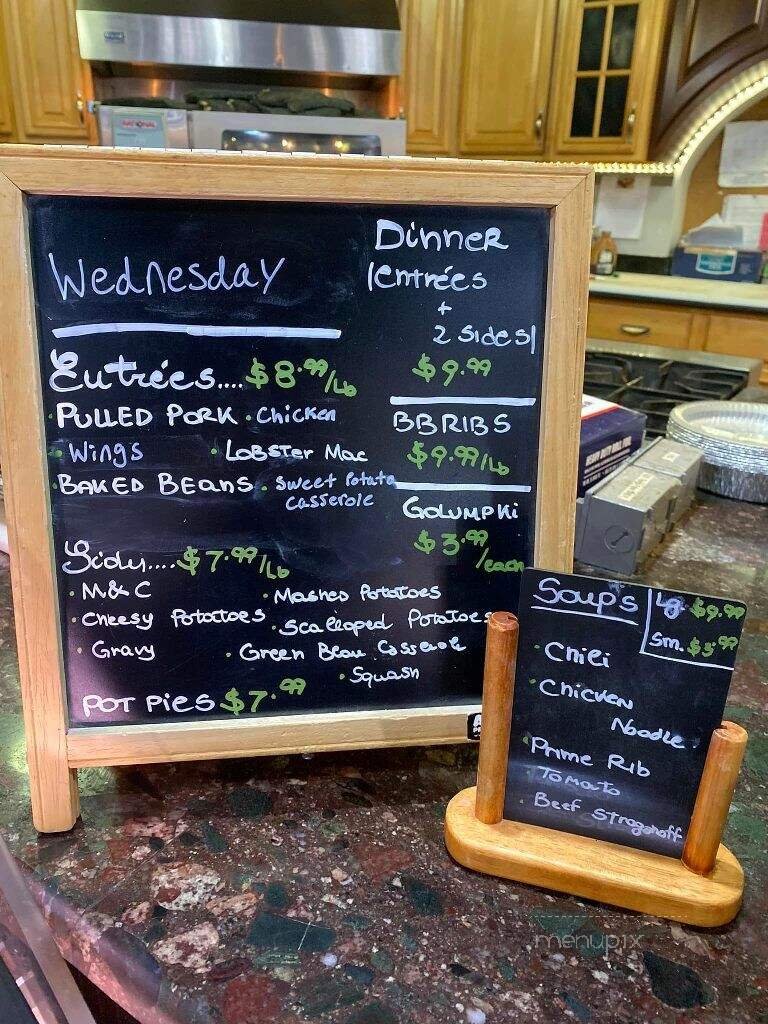 Wednesday
Entrées.... $8.99/Lb
• PULLED PORK • Chicken
• Wings • LOBSTER Mac
• BAKED BEANS • Sweet Potato
casserole
Sides.... $7.99/Lb
• M&C • Mashed Potatoes
• Cheesy Potatoes • Scalloped Potatoes
• Gravy • Green Bean Casserole
• Squash
POT PIES $7.99
Dinner
1entrées
+
2 Sides
$9.99
BBRIBS
$9.99/Lb
GOLUMPKi
$3.99/each
Soups
Lg. $9.99
Sm. $5.99
• Chili
• Chicken
Noodle
• Prime Rib
• Tomato
• Beef Stroganoff
NATIONAL
menupix